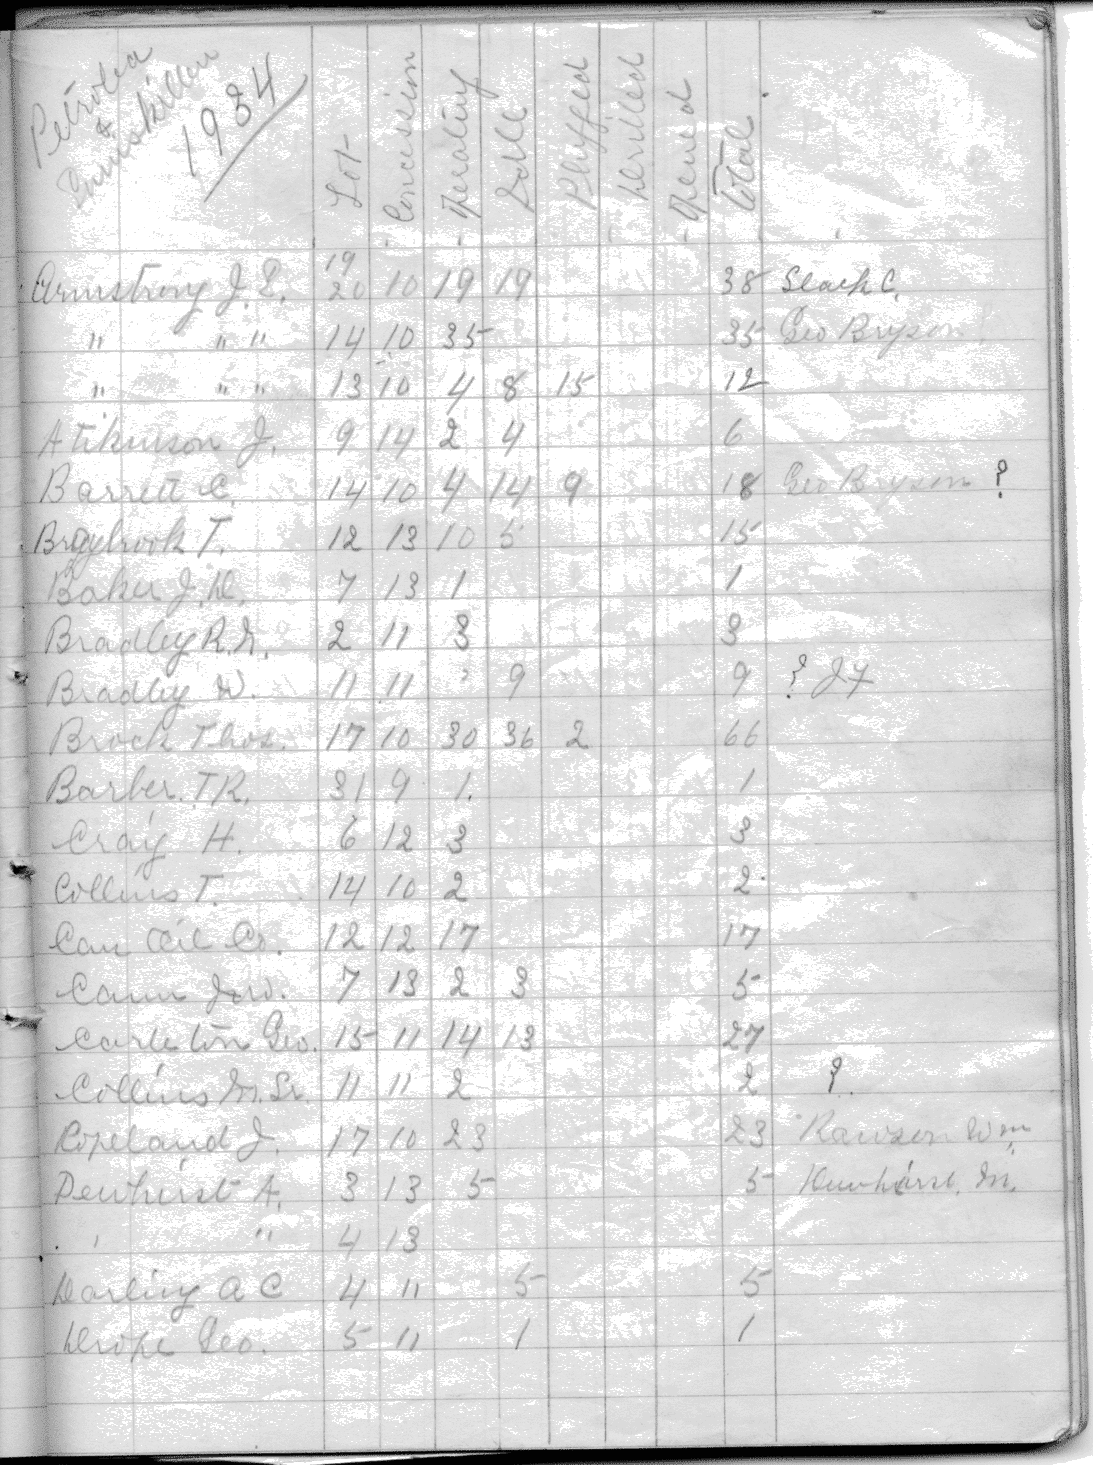 Petrolia
&
Enniskillen
1934
Lot Concession Operating Idle Plugged Drilled Opened Total
19
Armstrong J. E. 20 10 19 19 38 Slack C.
" " " 14 10 35 35 Geo Bryson
" " " 13 10 4 8 15 12
Atikinson J. 9 14 2 4 6
Barrett C. 14 10 4 14 9 18 Geo Bryson ?
Braybrook T. 12 13 10 5 15
Baker J. H. 7 13 1 1
Bradley R. 2 11 3 3
Bradley W. 11 11 9 9 ?
Brock Thos. 17 10 30 36 2 66
Barber T R. 31 9 1. 1
Craig H. 6 12 3 3
Collins T. 14 10 2 2
Can Oil Co. 12 12 17 17
7 13 2 3 5
Carleton Geo. 15 11 14 13 27
Collins M. Sr. 11 11 2 2 ?
Copeland J. 17 10 23 23 Rawson Wm
Dewhirst A. 3 13 5 5 Dewhirst. M.
' " 4 13
Darling A C 4 11 5 5
Drope Geo. 5 11 1 1